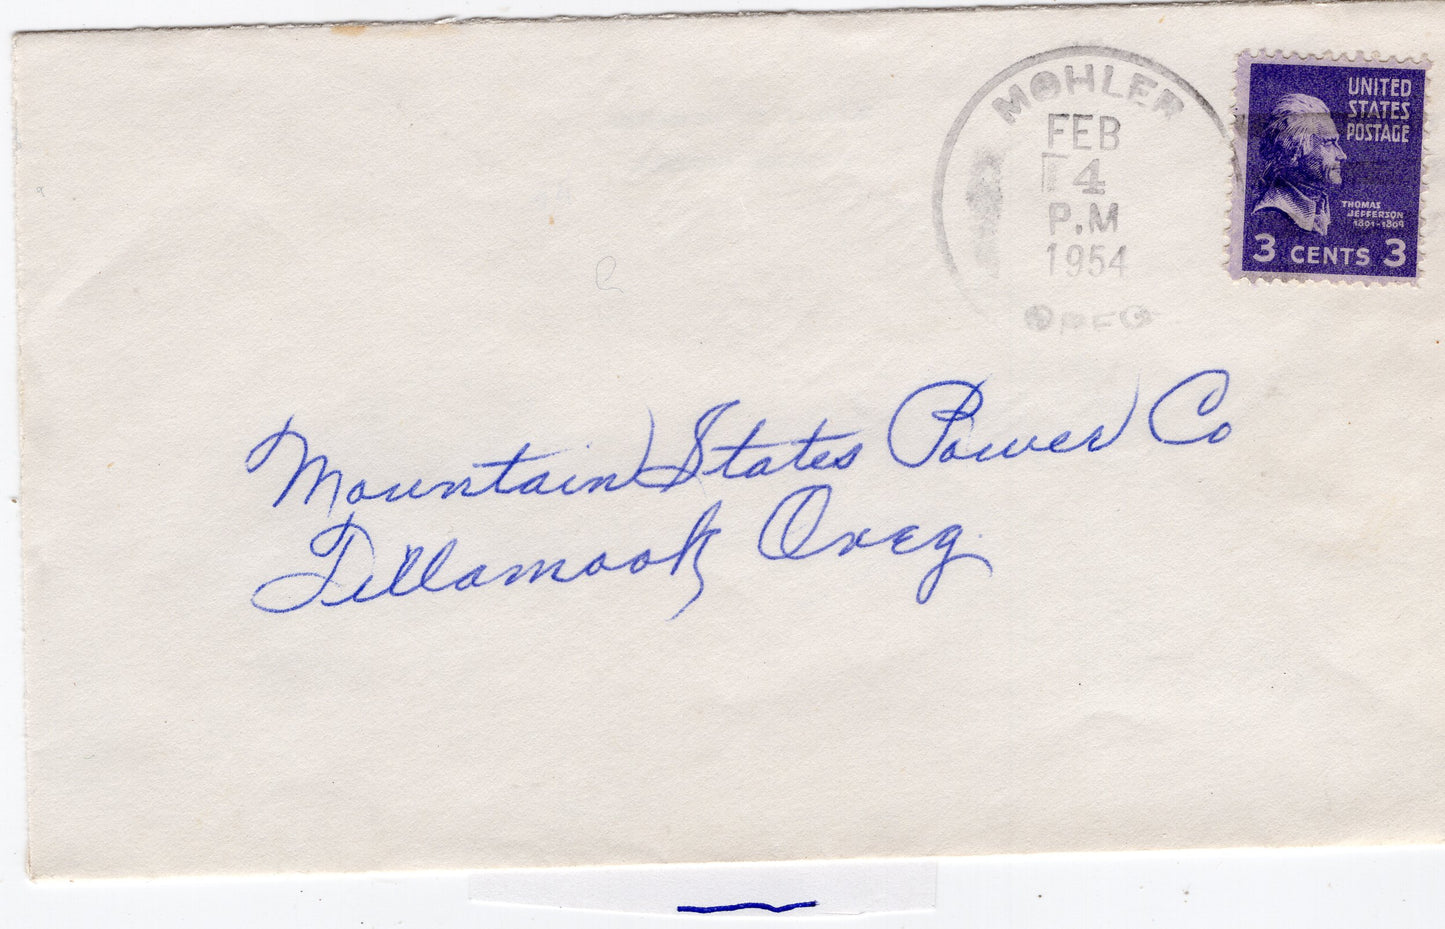 MOHLER
FEB
4
P.M
1954
OREG
UNITED
STATES
POSTAGE
THOMAS
JEFFERSON
1801-1809
3 CENTS 3
Mountain States Power Co
Tillamook Oreg.